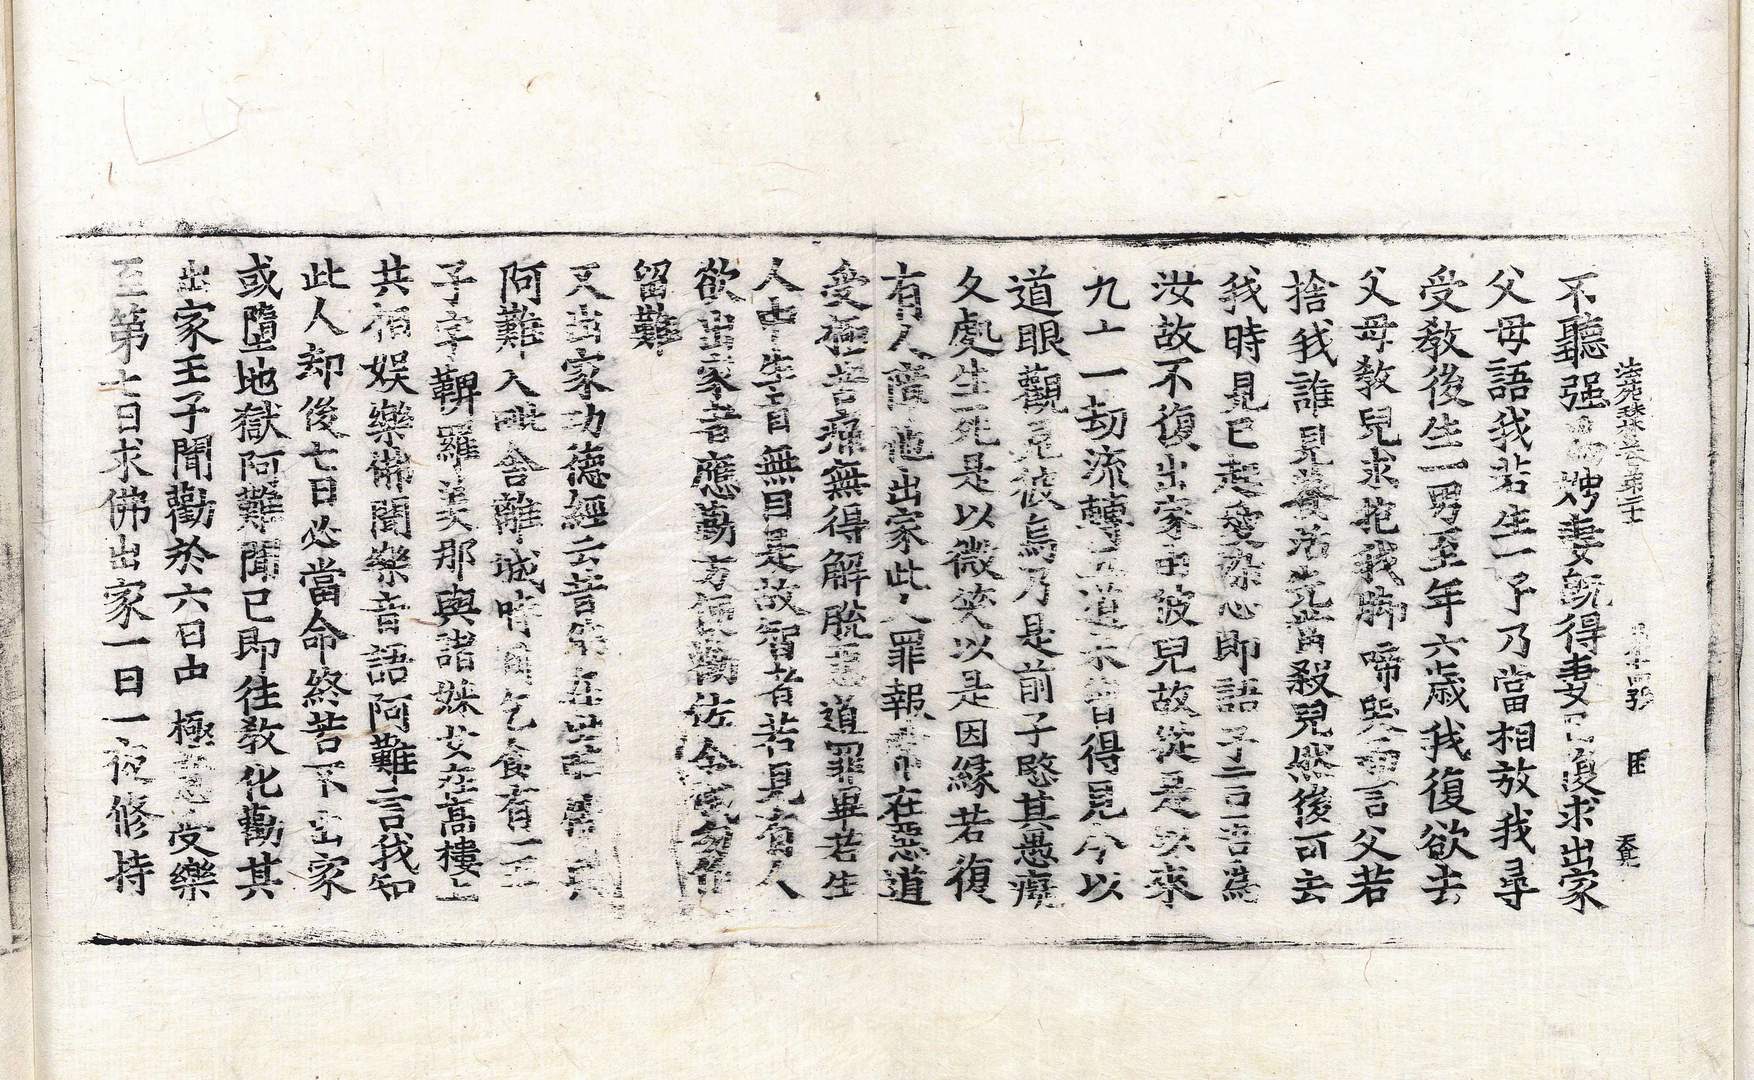 法苑珠林卷第二十二 第十四張 困
不聽强爲娉妻旣得妻已復求出家
父母語我若生一子乃當相放我尋
受敎後生一男至年六歲我復欲去
父母敎兒求抱我脚啼哭而言父若
捨我誰見養活先當殺兒然後可去
我時見已起愛染心卽語子言吾爲
汝故不復出家由彼兒故從是以來
九十一劫流轉五道未曾得見今以
道眼觀見彼烏乃是前子愍其愚癡
久處生死是以微笑以是因緣若復
有人障他出家此人罪報常在惡道
受極苦痛無得解脫惡道罪畢若生
人中生盲無目是故智者若見有人
欲出家者應勤方便勸佐令成勿作
留難
又出家功德經云昔佛在世
阿難入毗舍離城時到乞食有一王
子字鞞羅羡那與諸婇女在高樓上
共相娛樂佛聞樂音語阿難言我知
此人却後七日必當命終若不出家
或墮地獄阿難聞已卽往敎化勸其
出家王子聞勸於六日中 極意受樂
至第七日求佛出家一日一夜修持